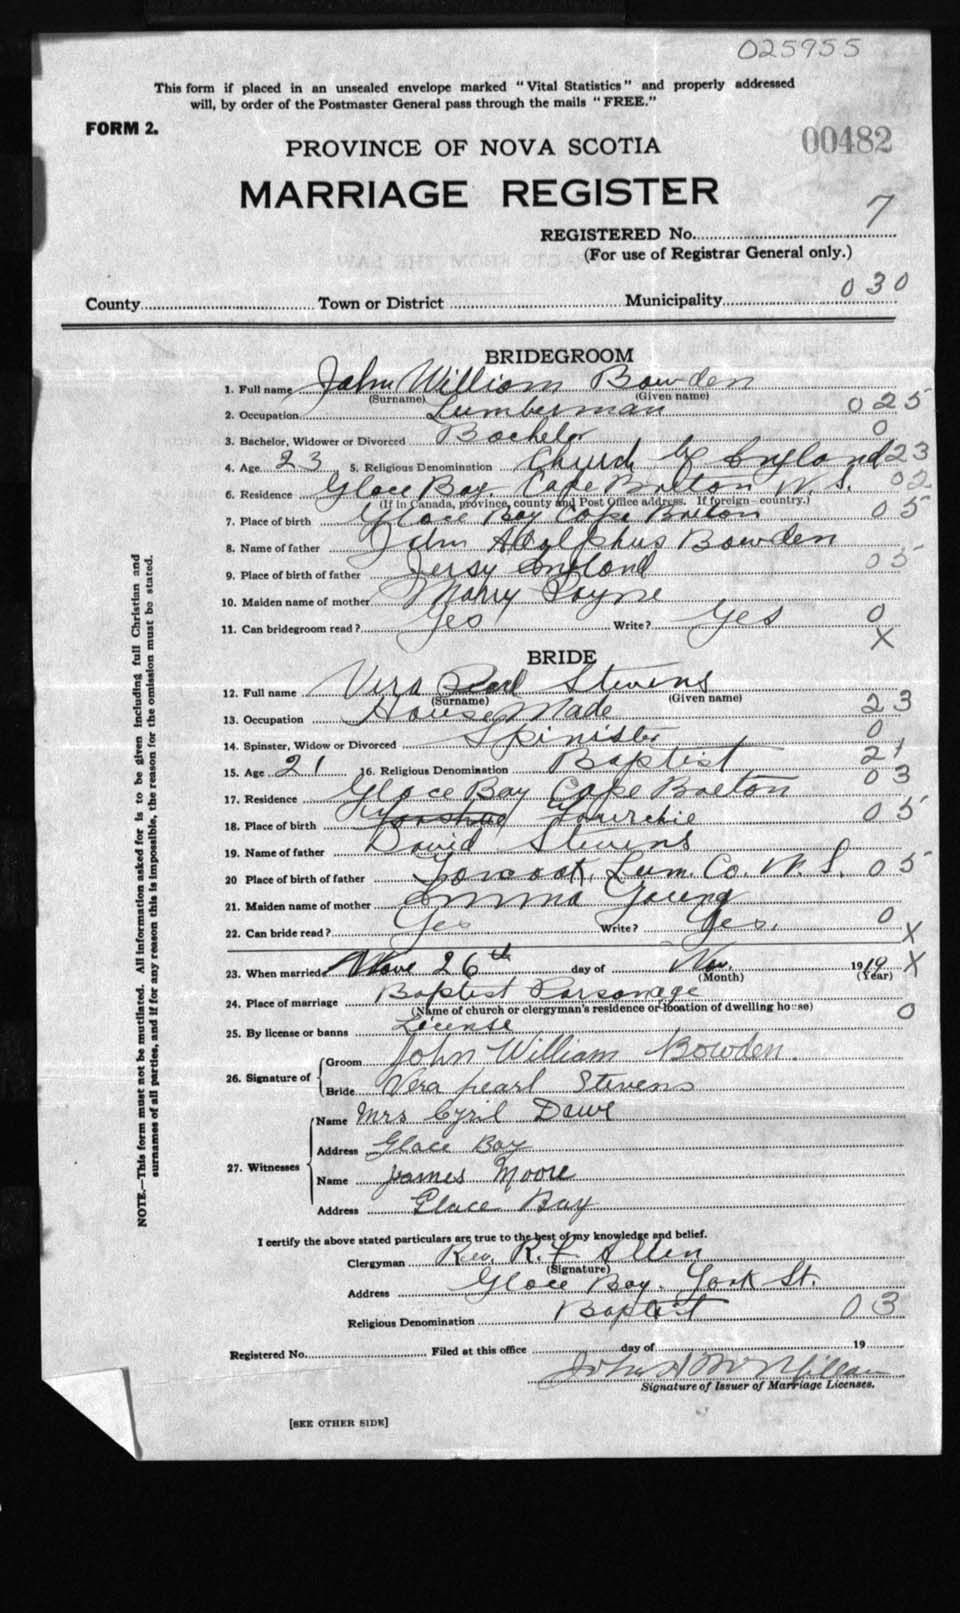 025955
This form if placed in an unsealed envelope marked "Vital Statistics" and properly addressed
will, by order of the Postmaster General pass through the mails "FREE."
FORM 2.
00482
PROVINCE OF NOVA SCOTIA
MARRIAGE REGISTER
REGISTERED No. 7
(For use of Registrar General only.)
County Town or District Municipality 030
BRIDEGROOM
1. Full name John William Bowden
(Surname) (Given name)
2. Occupation Lumberman 025
3. Bachelor, Widower or Divorced Bachelor 0
4. Age 23 5. Religious Denomination Church of England 23
6. Residence Glace Bay, Cape Breton N. S. 02
(If in Canada, province, county and Post Office address. If foreign - country.)
7. Place of birth Glace Bay Cape Breton 05
8. Name of father John Adolphus Bowden
9. Place of birth of father Jersy England 05
10. Maiden name of mother Payne
11. Can bridegroom read? Yes Write? Yes 0
X
BRIDE
12. Full name Vera Pearl Stevens
(Surname) (Given name)
13. Occupation House Made 23
14. Spinster, Widow or Divorced Spinister 0
15. Age 21 16. Religious Denomination Baptist 21
17. Residence Glace Bay Cape Breton 03
18. Place of birth Fourchie 05
19. Name of father David Stevens
20 Place of birth of father Lum. Co. N. S. 05
21. Maiden name of mother Emma Young
22. Can bride read? Yes Write? Yes. 0
X
23. When married 26th day of Nov. 1919 X
(Month) (Year)
24. Place of marriage Baptist Parsonage
(Name of church or clergyman's residence or location of dwelling house) 0
25. By license or banns License
26. Signature of Groom John William Bowden.
Bride Vera pearl Stevens
27. Witnesses Name Mrs Cyril Dawe
Address Glace Bay
Name James Moore
Address Glace Bay
I certify the above stated particulars are true to the best of my knowledge and belief.
Clergyman Rev. R. F Allen
(Signature)
Address Glace Bay. York St.
Religious Denomination Baptist 03
Registered No. Filed at this office day of 19
John
Signature of Issuer of Marriage Licenses.
[SEE OTHER SIDE]
NOTE.—This form must not be mutilated. All information asked for is to be given including full Christian and
surnames of all parties, and if for any reason this is impossible, the reason for the omission must be stated.